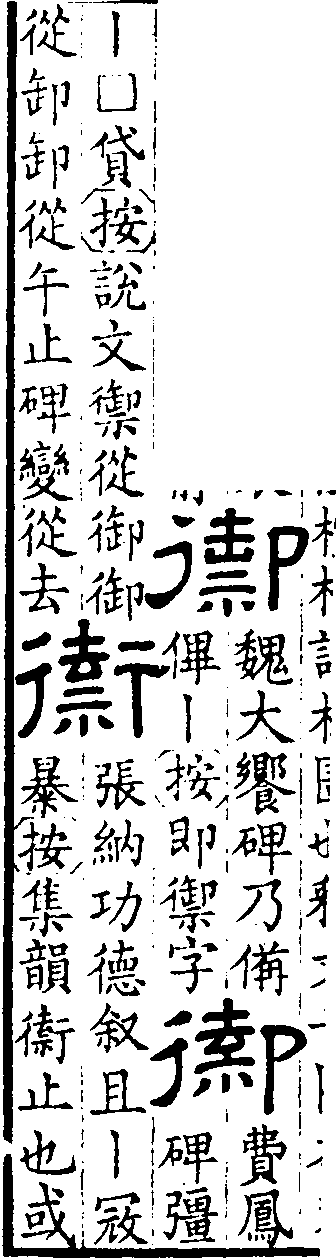 禦
魏大饗碑乃備
丨按即禦字
禦
費鳳
碑彊
丨□貸按說文禦從御御
從卸卸從午止碑變從去
張納功德叙且丨冦
暴按集韻止也或